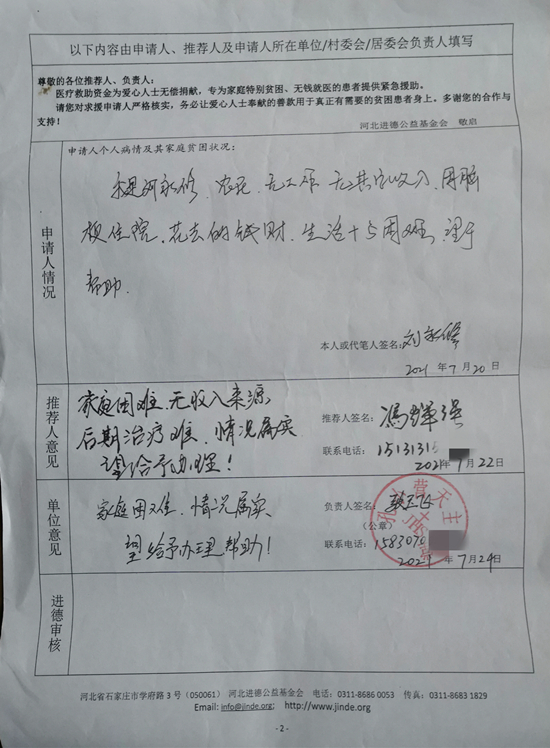 以下内容由申请人、推荐人及申请人所在单位/村委会/居委会负责人填写
尊敬的各位推荐人、负责人：
医疗救助资金为爱心人士无偿捐献，专为家庭特别贫困、无钱就医的患者提供紧急援助。
请您对求援申请人严格核实，务必让爱心人士奉献的善款用于真正有需要的贫困患者身上。多谢您的合作与
支持！
河北进德公益基金会 敬启
申请人情况
申请人个人病情及其家庭贫困状况：
农民、无工作 无其它收入、因脑
梗住院、花去的钱财、生活十分困难
帮助.
本人或代笔人签名：刘
2021 年 7 月 20 日
推荐人意见
家庭困难、无收入来源
后期治疗难、情况属实
望给予办理！
推荐人签名：冯
联系电话：15131315
2021 年 7 月 22 日
单位意见
家庭困难、情况属实
望给予办理帮助！
负责人签名：
（公章）
联系电话：1583070
2021 年 7 月 24 日
进德审核
河北省石家庄市学府路 3 号（050061） 河北进德公益基金会 电话：0311-8686 0053 传真：0311-8683 1829
Email: info@jinde.org; http://www.jinde.org
- 2 -